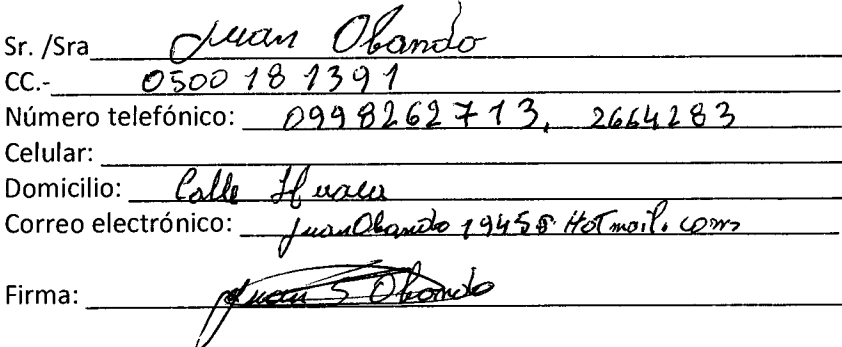 Sr. /Sra Juan Obando
CC.- 0500181391
Número telefónico: 0998262713, 2664283
Celular:
Domicilio: Calle
Correo electrónico: HoTmail.com
Firma: Juan S Obando